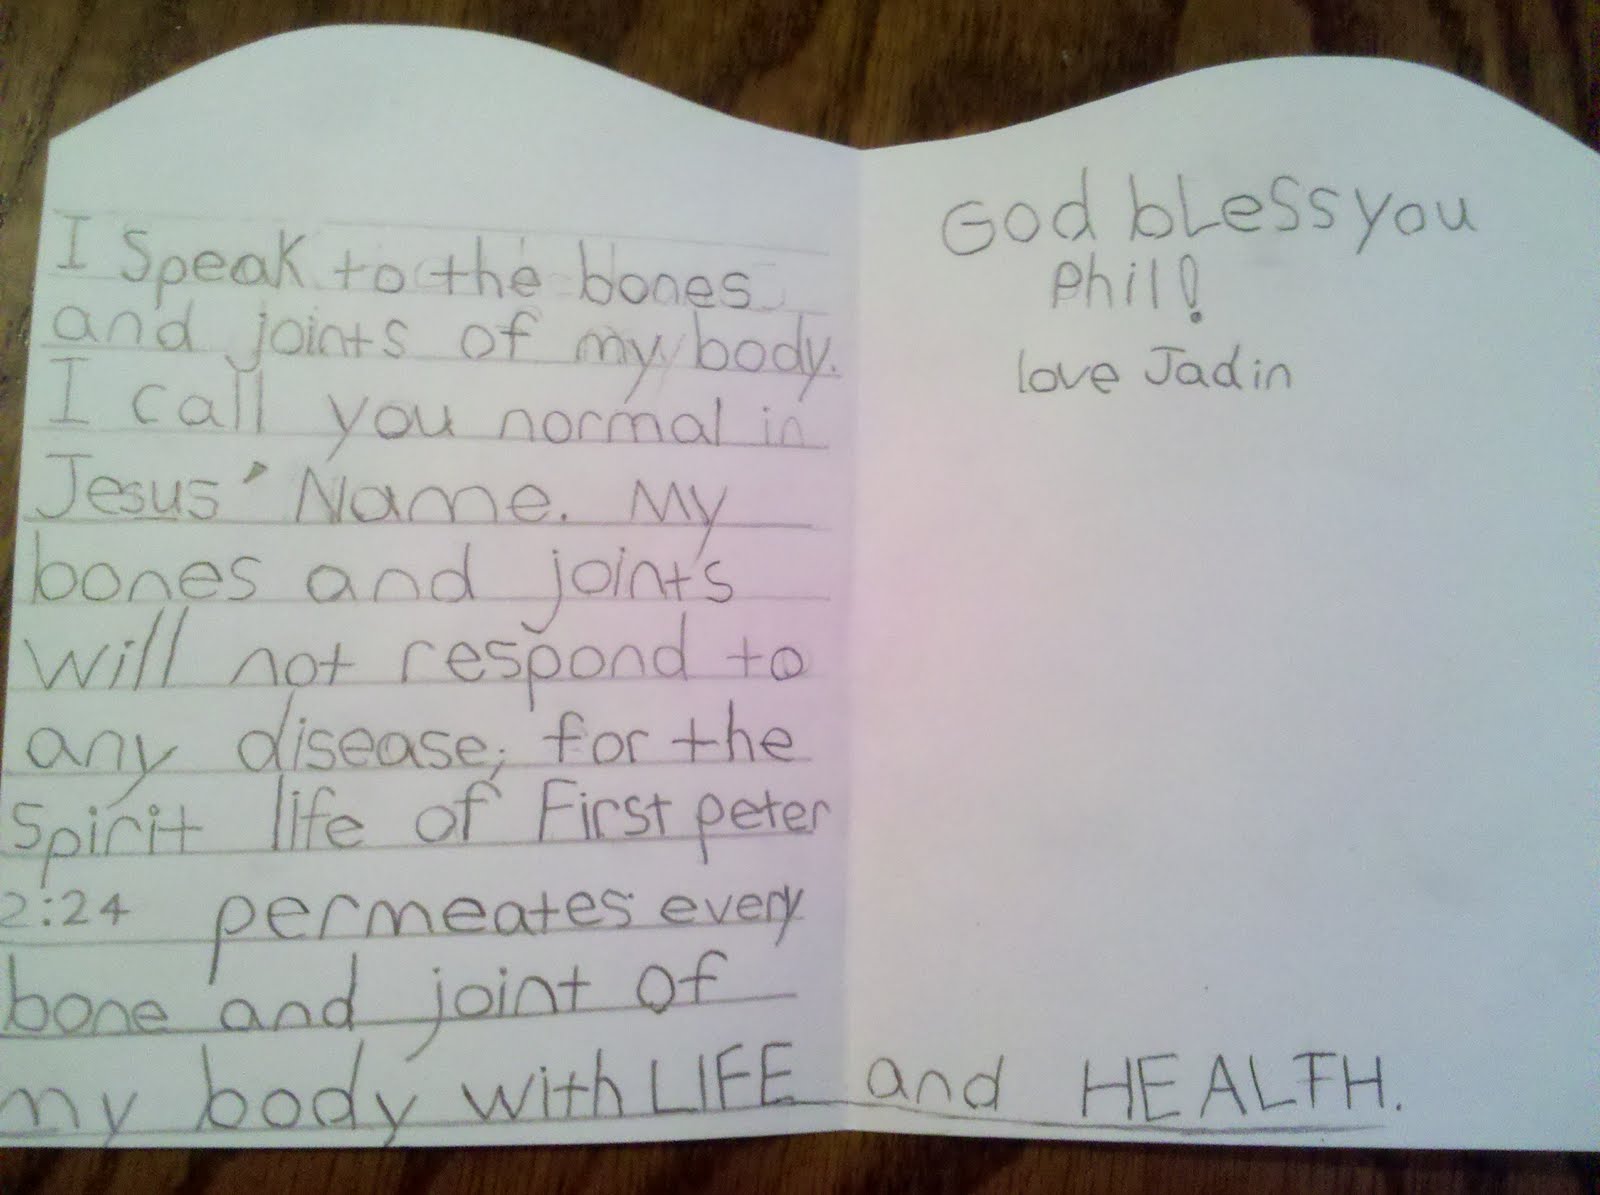 I Speak to the bones
and joints of my body.
I call you normal in
Jesus' Name. My
bones and joints
will not respond to
any disease; for the
Spirit life of First peter
2:24 permeates every
bone and joint of
my body with LIFE and HEALTH.
God bLess you
Phil!
love Jadin